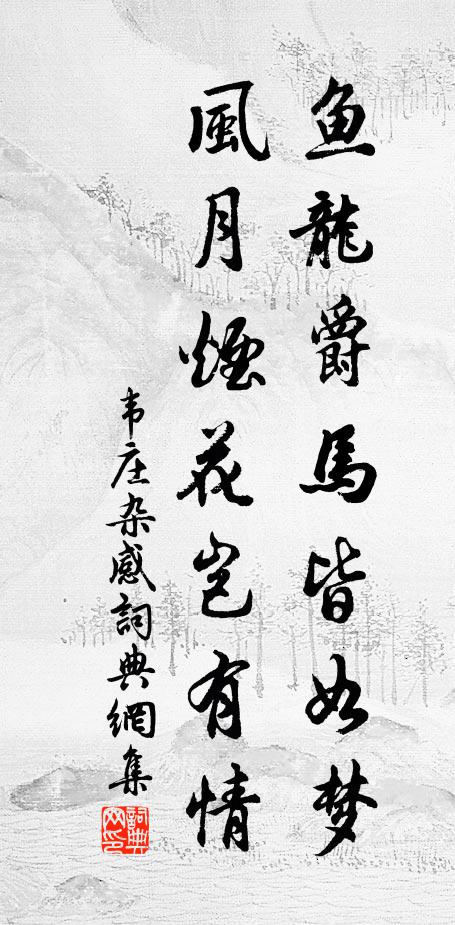 鱼龍爵馬皆如梦
風月煙花岂有情
韦庄杂感詞典網集
詞典网印